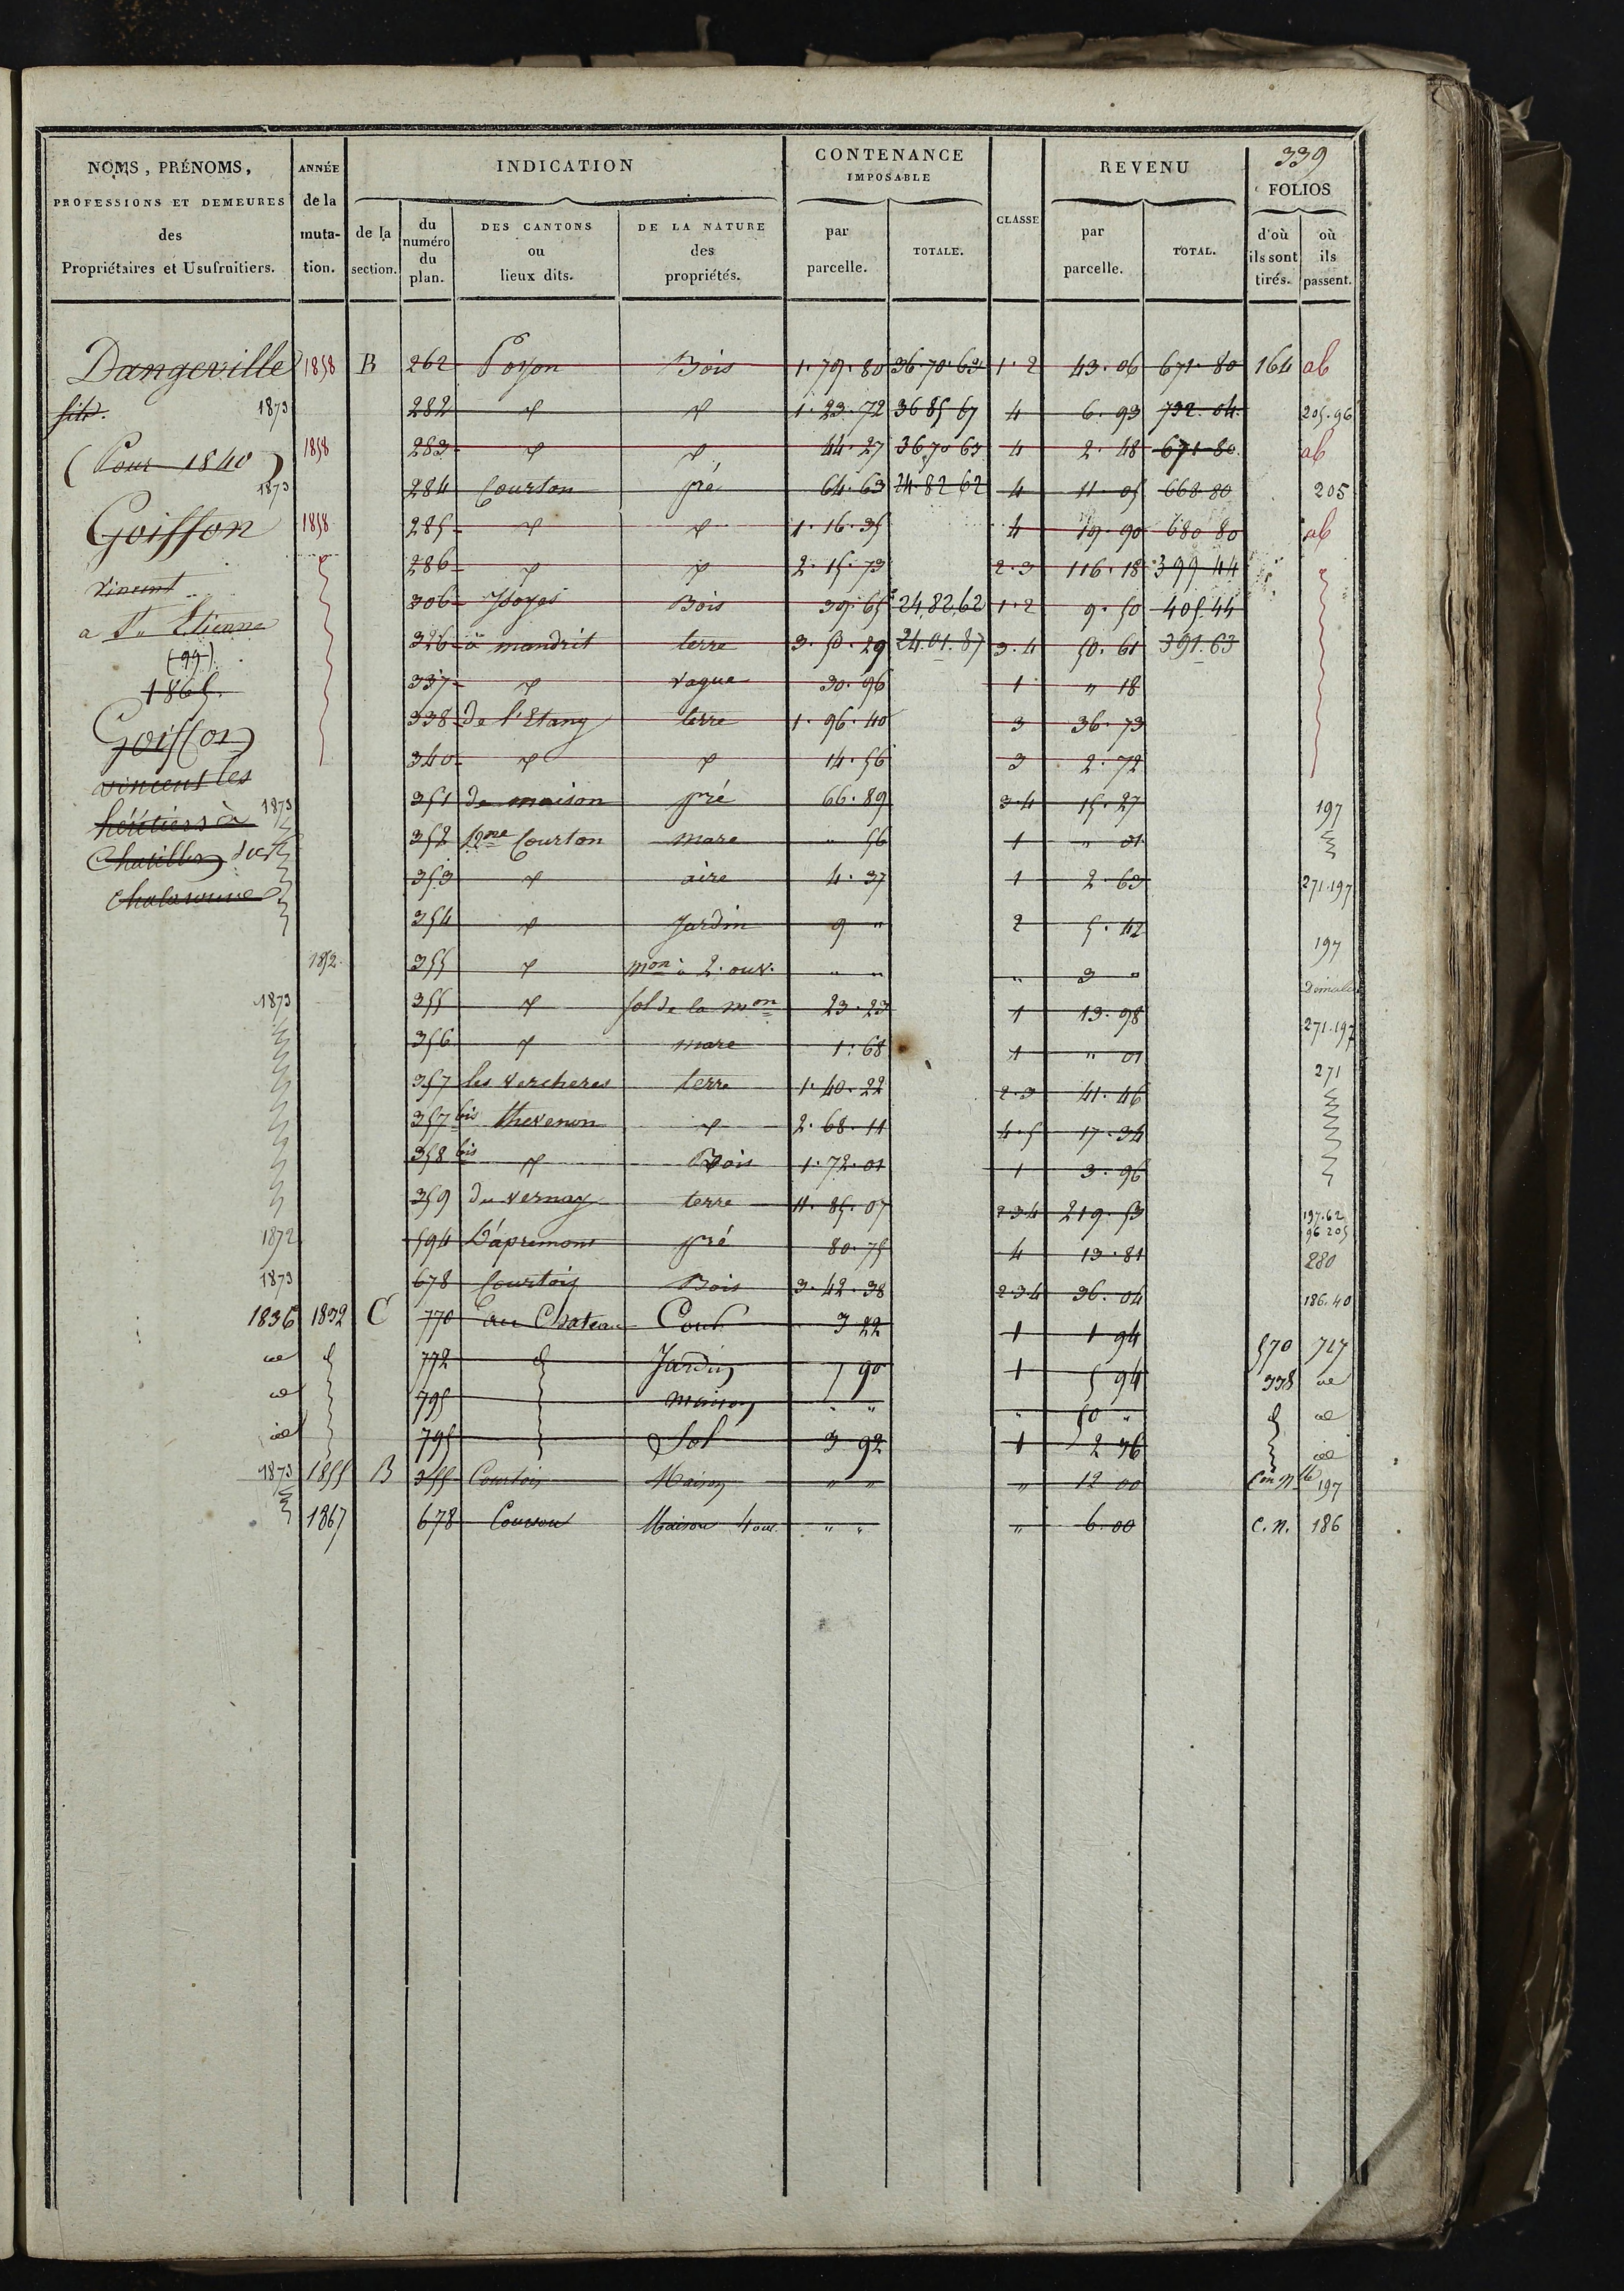 339
NOMS, PRÉNOMS,
PROFESSIONS ET DEMEURES
des
Propriétaires et Usufruitiers.
ANNÉE
de la
muta-
tion.
INDICATION
de la
section.
du
numéro
du
plan.
DES CANTONS
ou
lieux dits.
DE LA NATURE
des
propriétés.
CONTENANCE
IMPOSABLE
par
parcelle.
TOTALE.
CLASSE
REVENU
par
parcelle.
TOTAL.
FOLIOS
d'où
ils sont
tirés.
où
ils
passent.
Dangeville
(Pour 1840)
Goiffon
Vincent
a St Etienne
(99)
1865.
Goiffon
vincent les
héritiers à
Chatillon sur
Chalaronne
1858 B 262 Poyon Bois 1.79.80 36.70.63 1.2 43.06 671.80 164 ab
1873 282 d d 1.23.72 36 85 67 4 6.93 732.04 205.96
1858 283 d d 44.27 36 70 63 4 2.48 671 80 ab
1873 284 Courton pré 64.63 24 82 62 4 11.05 668 80 205
1858 285 d d 1.16.35 4 19.90 680 80 ab
286 d d 2.15.73 2.3 116.18 399 44
306 Bois 39.65 24,82,62 1.2 9.50 405.44
326 à mandrit terre 3.50.29 24.01.87 3.4 50.61 391.63
337 d vague 30.96 1 " 18
338 De l'Etang terre 1.96.40 3 36.73
340 d d 14.56 3 2.72
1873 351 De maison pré 66.89 3.4 15.27 197
352 Courton mare " 56 1 " 01
353 d aire 4.37 1 2.63 271.197
354 d Jardin 9 " 2 5.42 197
1852 355 d mon à 2. ouv. " " " 3 "
1873 355 d sol de la mon 23.23 1 13.98 271.197
356 d mare 1.68 1 " 01 271
357 les Vercheres terre 1.40.22 2.3 41.46
357 bis thevenon d 2.68.11 4.5 17.34
358 bis d Bois 1.72.01 1 3.96
359 du vernay terre 11.85.07 2 3 4 219.53 197.62 96 205
1872 594 D'apremont pré 80.75 4 13.81 280
1873 678 Courtois Bois 3.42.38 2 3 4 36.04 186.40
1836 1832 C 770 au Chateau Cour 3 22 1 1 94 570 727
id d 772 d Jardin 7 90 1 5 94 338 id
id 795 maison " " " 50 " d id
id 795 Sol 3 92 1 2 36 id
1873 1855 B 355 Courtois Maison " " " 12 00 Con Nlle 197
1867 678 Maison 4 ouv. " " " 6.00 C.N. 186